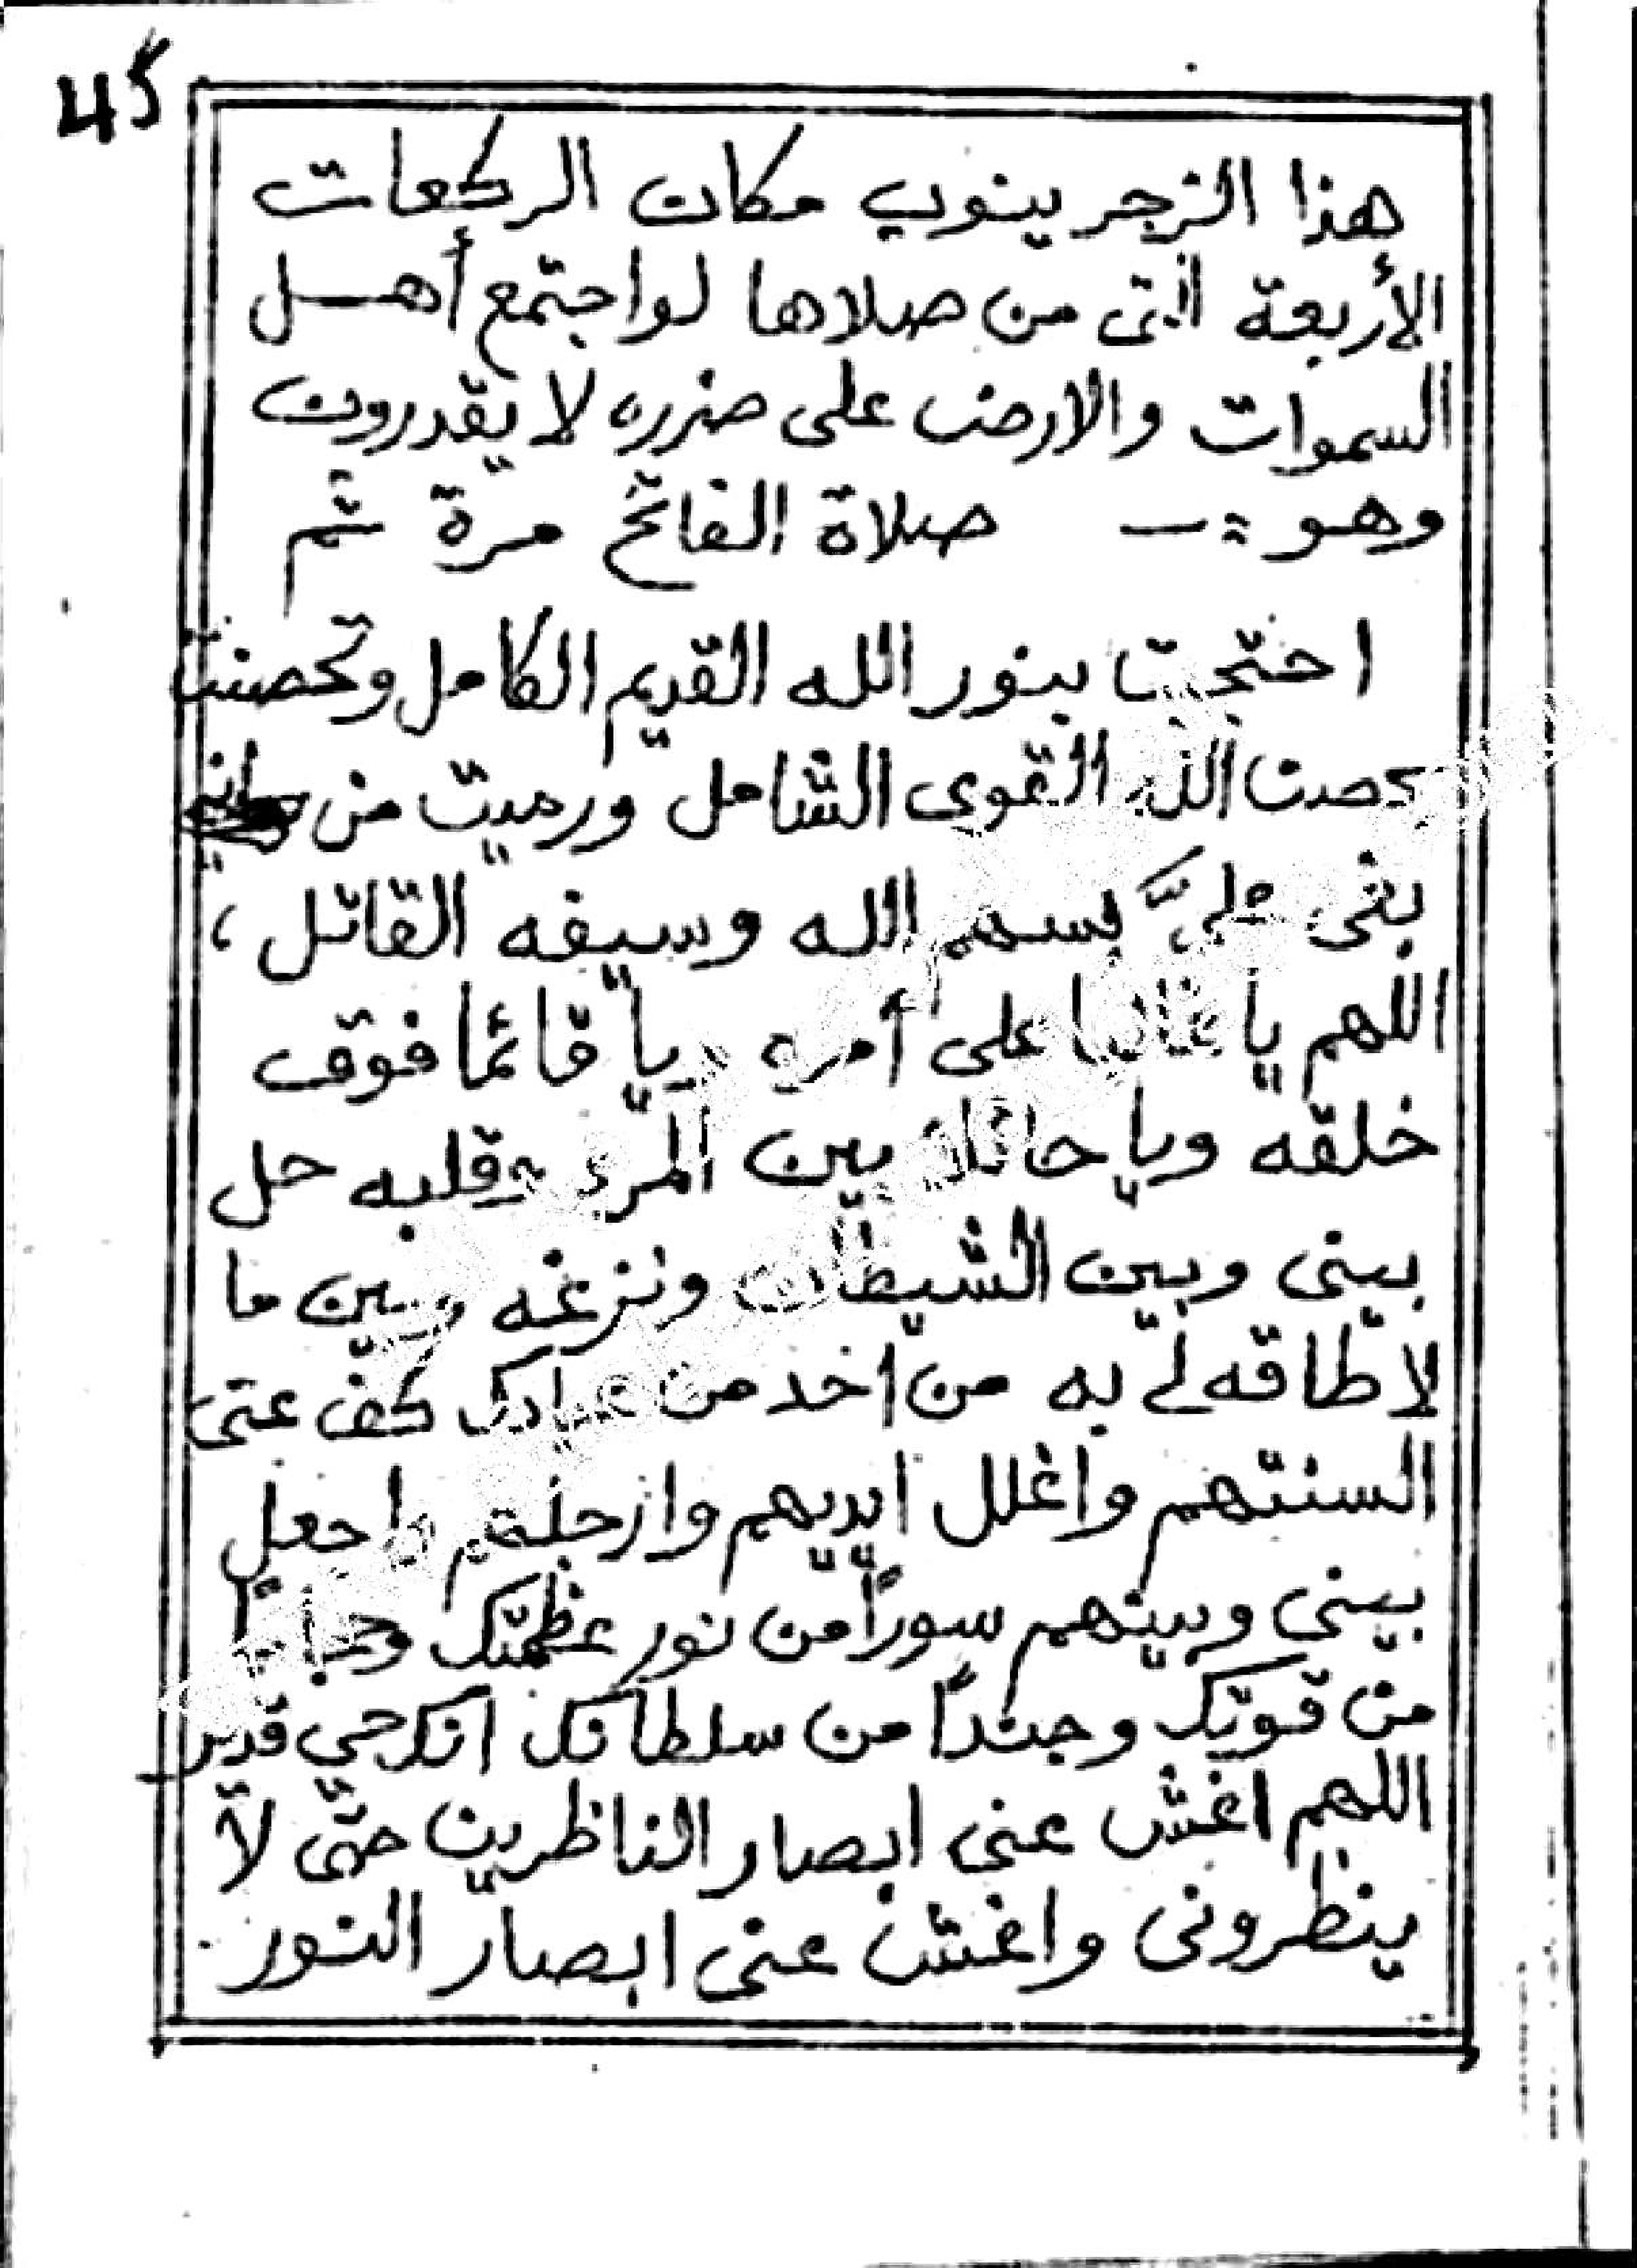 45
هذا الزجر ينوب مكان الركعات
الأربعة التى من صلاها لو اجتمع أهل
السموات والارض على ضرره لا يقدرون
وهو :- صلاة الفاتح مرة ثم
احتجبت بنور الله القديم الكامل وتحصنت
بحصن الله القوى الشامل ورميت من
بغى علىَّ بسهم الله وسيفه القاتل ،
اللهم يا غالبا على أمره ويا قائما فوق
خلقه ويا حائلا بين المرء وقلبه حل
بينى وبين الشيطان ونزغه وبين ما
لا طاقه لى به من احد من عبادك كف عنى
السنتهم واغلل ايديهم وارجلهم واجعل
بينى وبينهم سوراً من نور عظمتك وحجابا
من قوتك وجنداً من سلطانك انك حي قدير
اللهم اغش عنى ابصار الناظرين حتى لا
ينظرونى واغش عنى ابصار النور